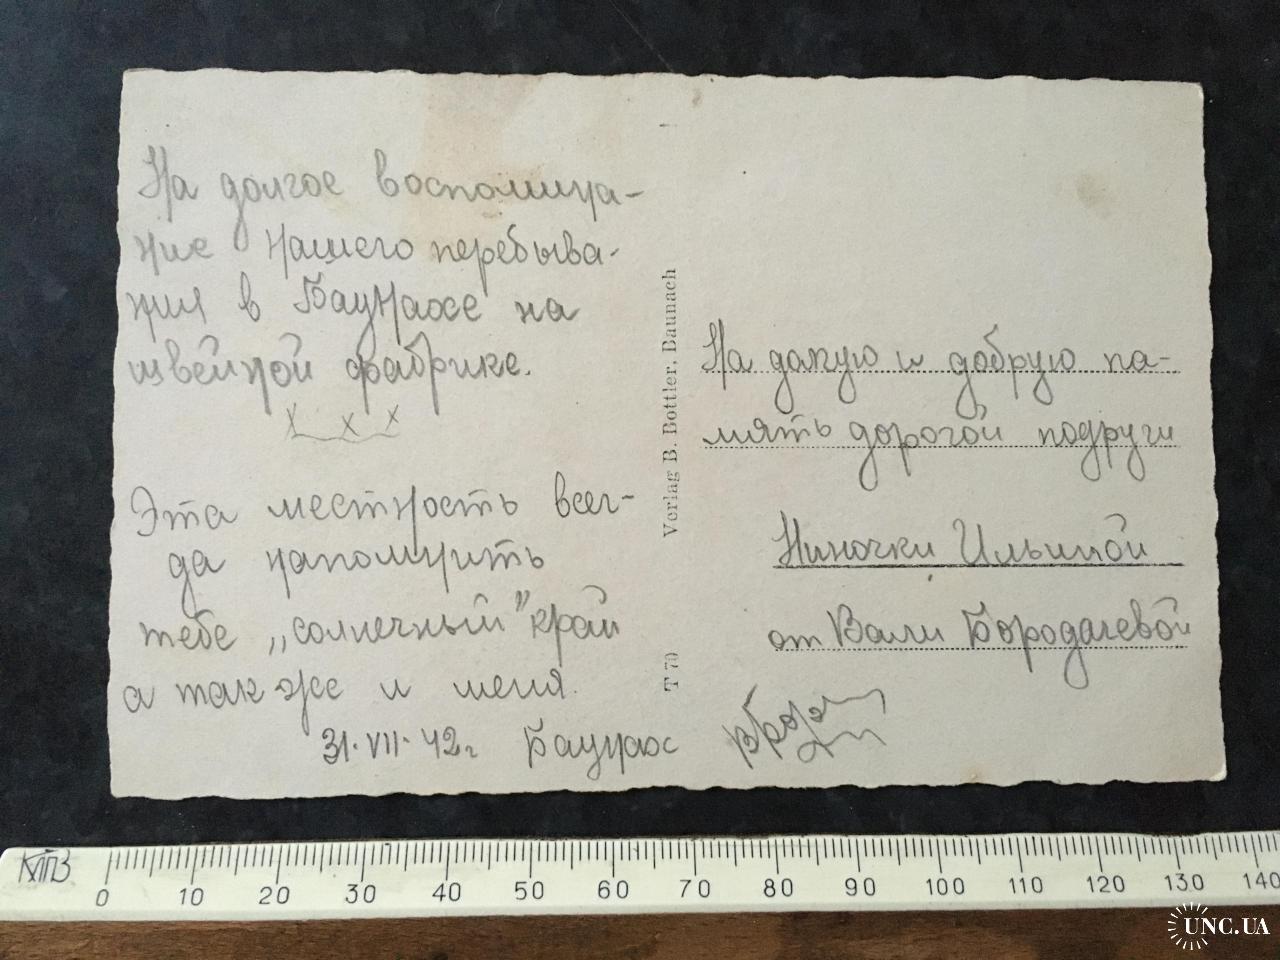 На долгое воспомина-
ние нашего перебыва-
ния в Баунахе на
швейной фабрике.
х х х
Эта местность всег-
да напомнить
тебе „солнечный" край
а так же и меня.
31·VII·42г Баунах
Verlag B. Bottler, Baunach
T 70
На долгую и добрую па-
мять дорогой подруги
Ниночки Ильиной
от Вали Бородачевой
0 10 20 30 40 50 60 70 80 90 100 110 120 130 140
UNC.UA